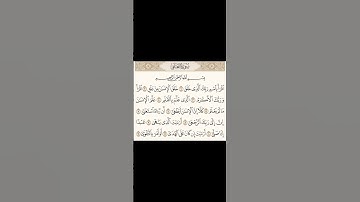 سُورَةُ العَلَقِ
بِسْمِ ٱللَّهِ ٱلرَّحْمَٰنِ ٱلرَّحِيمِ
ٱقْرَأْ بِٱسْمِ رَبِّكَ ٱلَّذِى خَلَقَ ١ خَلَقَ ٱلْإِنسَٰنَ مِنْ عَلَقٍ ٢ ٱقْرَأْ
وَرَبُّكَ ٱلْأَكْرَمُ ٣ ٱلَّذِى عَلَّمَ بِٱلْقَلَمِ ٤ عَلَّمَ ٱلْإِنسَٰنَ
مَا لَمْ يَعْلَمْ ٥ كَلَّآ إِنَّ ٱلْإِنسَٰنَ لَيَطْغَىٰٓ ٦ أَن رَّءَاهُ ٱسْتَغْنَىٰٓ ٧
إِنَّ إِلَىٰ رَبِّكَ ٱلرُّجْعَىٰٓ ٨ أَرَءَيْتَ ٱلَّذِى يَنْهَىٰ ٩ عَبْدًا
إِذَا صَلَّىٰٓ ١٠ أَرَءَيْتَ إِن كَانَ عَلَى ٱلْهُدَىٰٓ ١١ أَوْ أَمَرَ بِٱلتَّقْوَىٰٓ ١٢